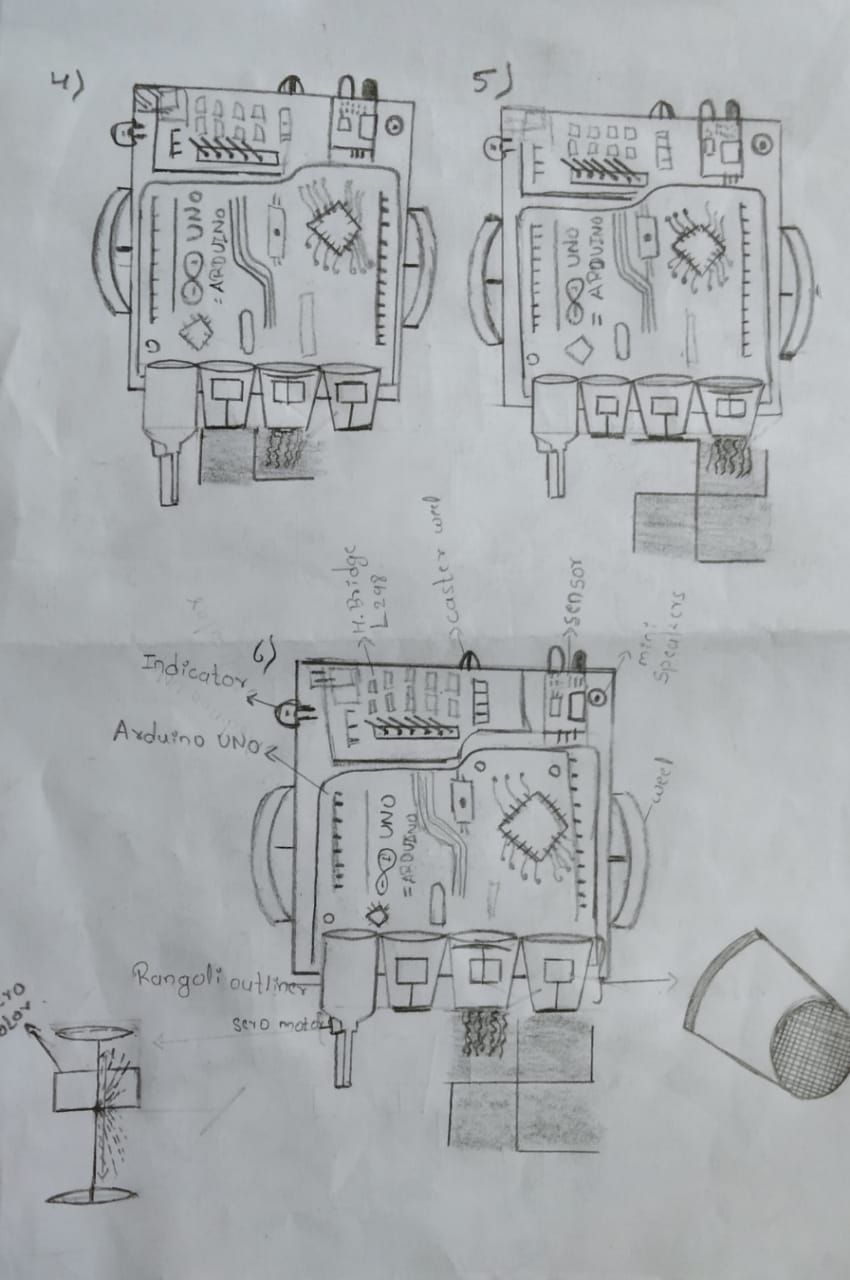 4)
UNO
= ARDUINO
5)
UNO
= ARDUINO
6)
H.Bridge
L298
caster weel
sensor
mini
speakers
Indicator
Arduino UNO
weel
UNO
= ARDUINO
Rangoli outliner
sero motor